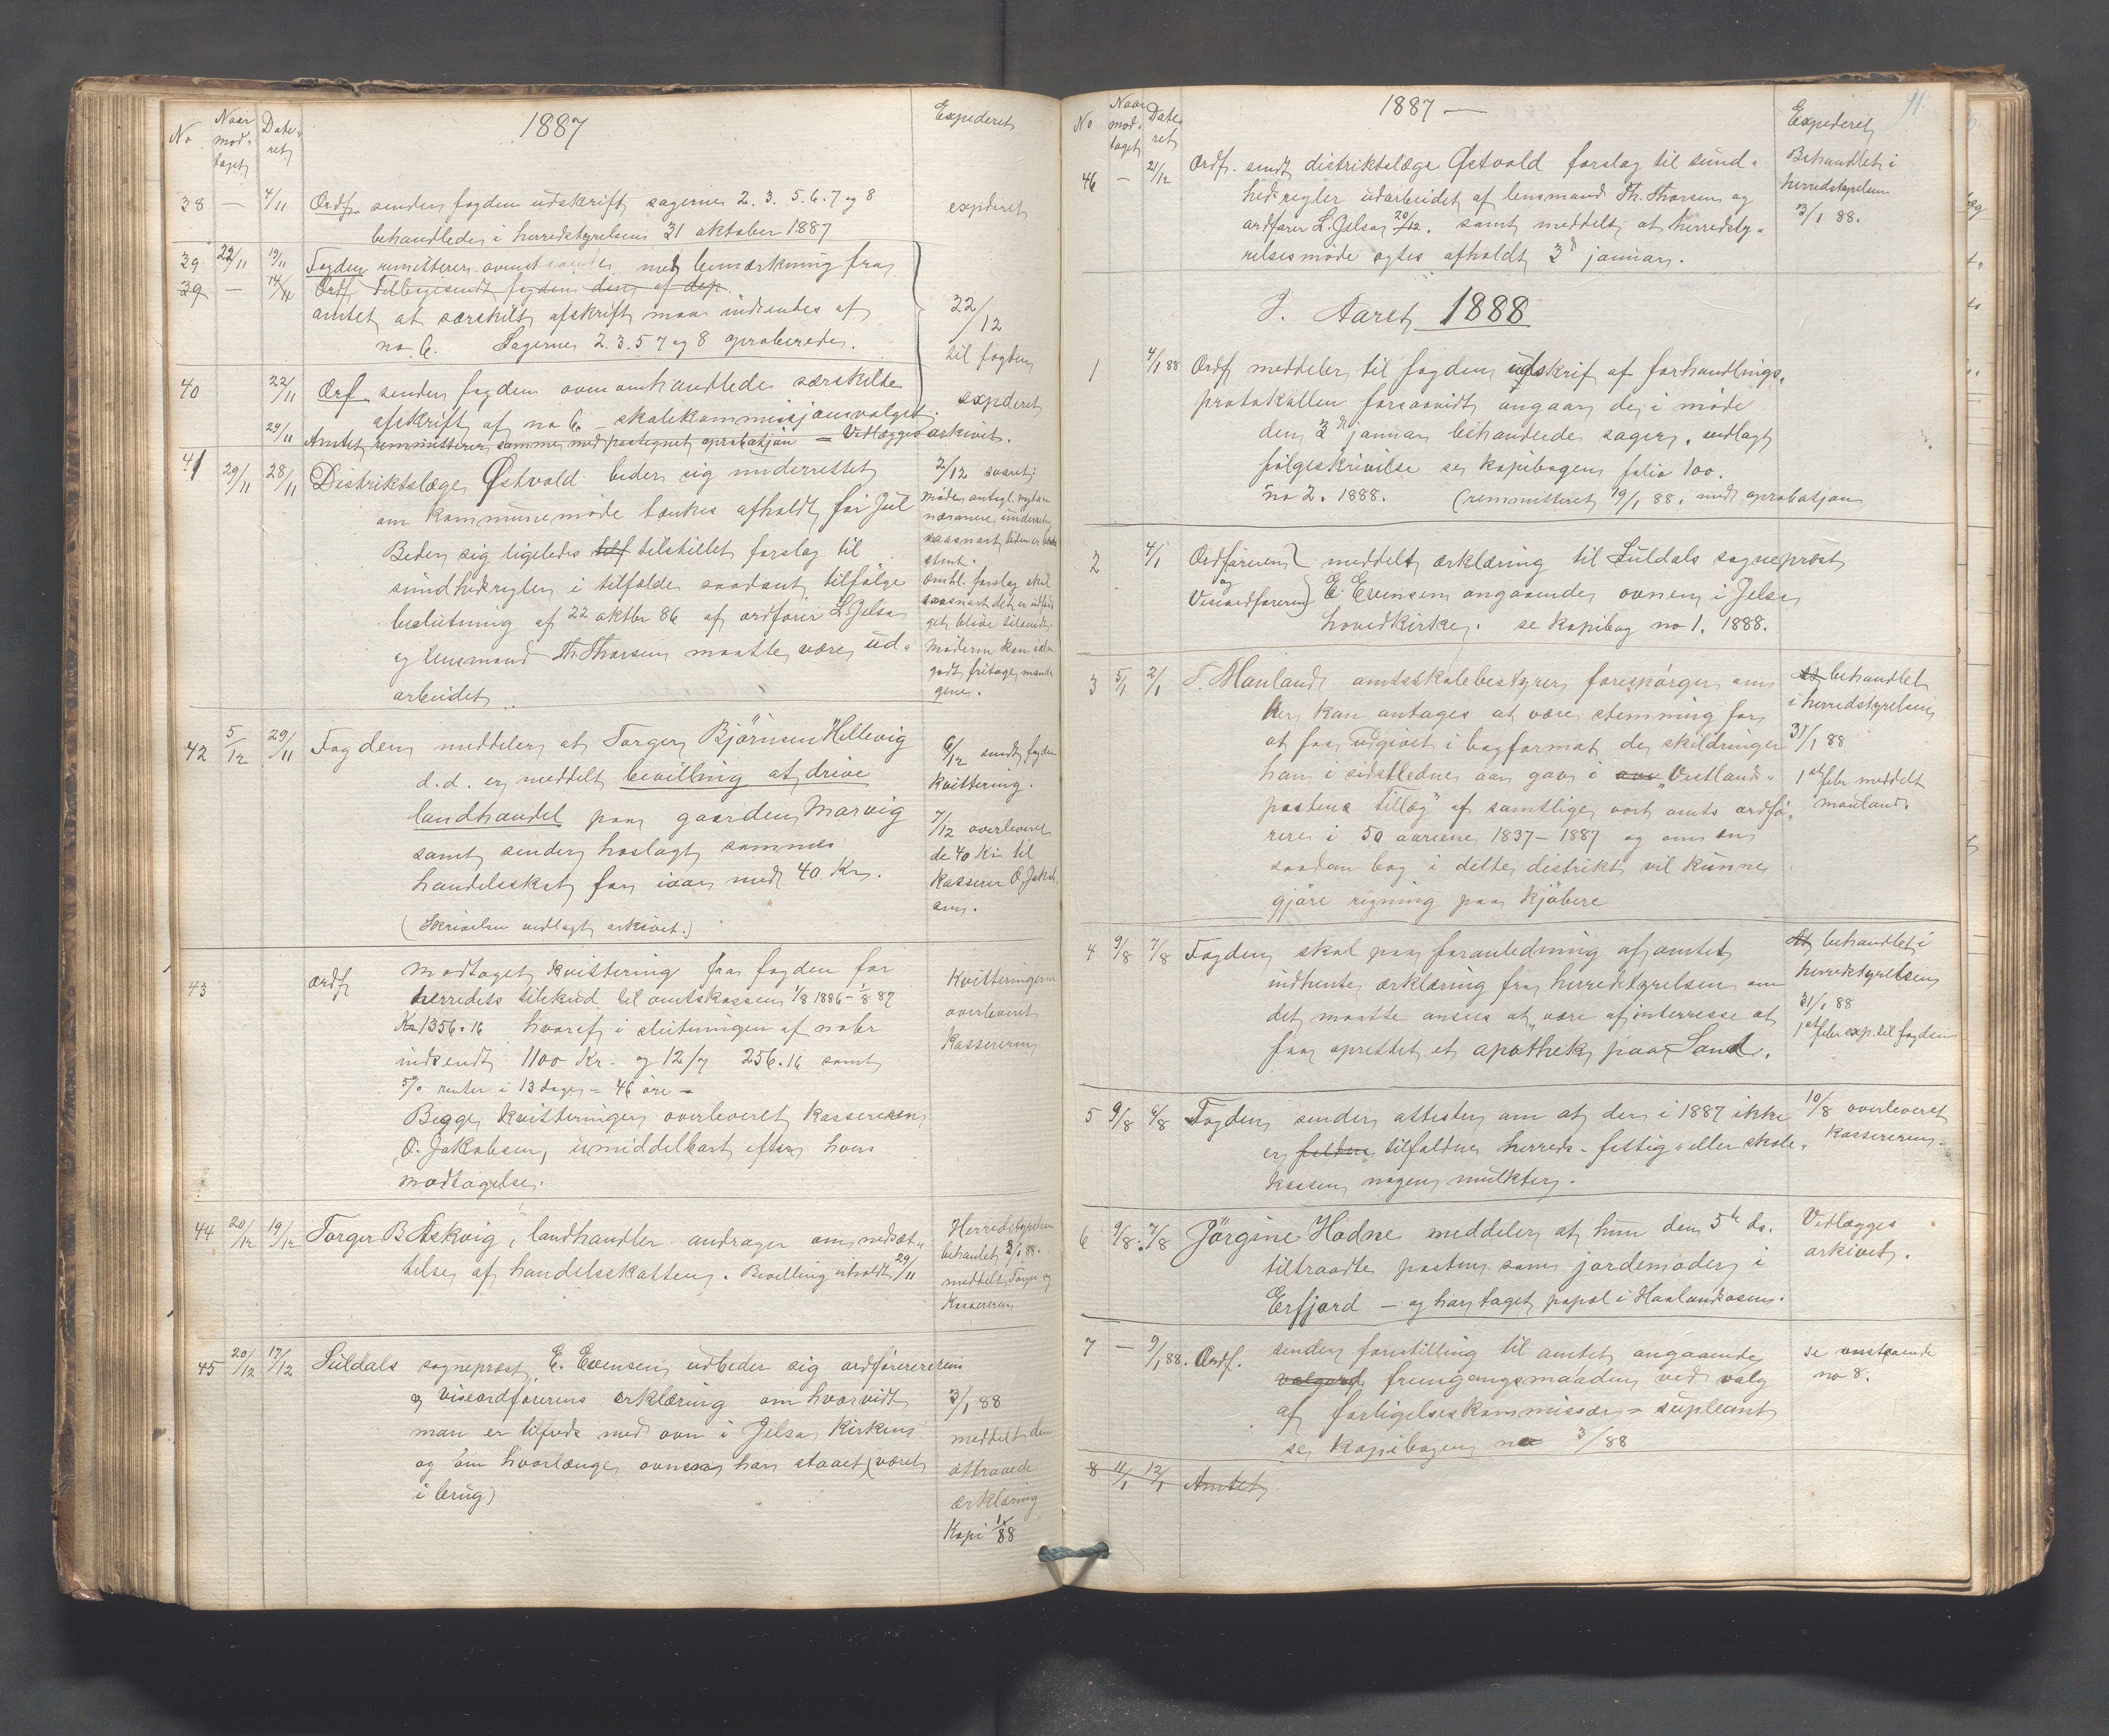 No
Naar mod-taget
Date-ret
1887
Expederet
38 — 4/11 Ordfr. sender fogden udskrift sagerne 2. 3. 5. 6. 7 og 8
behandlede i herredstyrelsen 31 oktober 1887
expderet
39 22/11 19/11 Fogden remitterer med bemærkning fra
39 — 14/11 Ordf. Tilbagesendt fogden den af dep.
amtet at særskilt afskrift maa indsendes af
no. 6. Sagerne 2. 3. 5 7 og 8 aproberede.
22/12
til fogden
40 22/11 Orf sender fogden ovenomhandlede særskilte
afskrift af no 6 – skolekommissjonsvalget.
expderet
29/11 Amtet remmitterer samme med paategnet aprobatjon = Vedlægges arkivet.
41 29/11 28/11 Distriktslæge Østvold beder sig underrettet
om kommunemøde tænkes afholdt før Jul
Beder sig ligeledes tilf tilstillet forslag til
sundhedsregler i tilfælde saadant tilfølge
beslutning af 22 oktbr 86 af ordfører L. Jelsa
og lensmand Th. Thorsen maatte være ud-
arbeidet
2/12 svaret:
Møde antagl. nytaar
nærmere underret.
saasnart tiden er
stemt.
Omtl. forslag skal
saasnart det er
get blive tilsendt.
gene.
42 5/12 29/11 Fogden meddeler at Torger Björnsen Hellevig
d.d. er meddelt bevilling at drive
landhandel paa gaarden Marvig
samt sender hoslagt sammes
handelsskat for iaar med 40 Kr.
(Skrivelsen vedlagt arkivet.)
6/12 sendt fogden
kvittering.
7/12 overleveret
de 40 Kr. til
Kasserer O. Jakob-
sen.
43 ordf modtaget kvittering fra fogden for
herredets tilskud til amtskassen 1/8 1886 – 1/8 87
Kr 1356.16 hvoraf i slutningen af nobr
indsendt 1100 Kr. og 12/9 256.16 samt
5% renter i 13 dage = 46 øre –
Begge kvitteringer overleveret kassereren
O. Jakobsen, umiddelbart efter hver
modtagelse.
Kvitteringerne
overleveret
Kassereren
44 20/12 19/12 Torger B Askvig, landhandler andrager om nedsæt-
telse af handelsskatten. Bevilling erholdt 29/11
Herredstyrelsen
behandlet 3/1 88.
meddelt Torger og
Kassereren
45 20/12 17/12 Suldals sogneprest E. Evensen udbeder sig ordførererens
og viseordførerens erklæring om hvorvidt
man er tilfreds med ovn i Jelsa Kirken
og om hvorlænge ovnene har staaet (været
i brug)
3/1 88
meddelt den
attraaede
ærklæring
Kopi 1/88
91.
No
Naar mod-taget
Date-ret
1887 —
Expederet
46 — 21/12 Ordfr. sendt distriktslæge Østvold forslag til sund-
hedsregler udarbeidet af lensmand Th. Thorsen og
ordfører L. Jelsa 20/12. samt meddelt at herredsty-
relsesmøde agtes afholdt 3d januar.
Behandlet i
herredstyrelsen
3/1 88.
I. Aaret 1888
1 4/1 88 Ordf meddeler til fogden udskrif af forhandlings-
protokollen forsaavidt angaar de i møde
den 3d januar behandlede sager. vedlagt
følgeskrivelse se kopibogen folio 100.
no 2. 1888. (remmitteret 19/1 88. med aprobatjon
2 4/1 Ordføreren og Viseordføreren meddelt ærklæring til Suldals sogneprest
E. Evensen angaaende ovnen i Jelsa
hovedkirke. se kopibog no 1. 1888.
3 5/1 2/1 T. Mauland amtsskolebestyrer forespørger om
her kan antages at være stemning for
at faa udgivet i bogformat de skildringer
han i sidstledne aar gav i „Vestlands-
postens Tillæg" af samtlige vort amts ordfø-
rere i 50 aarene 1837–1887 og om en
saadan bog i dette distrikt vil kunne
gjøre regning paa kjøbere
behandlet
i herredstyrelsen
31/1 88
1ste febr meddelt
Mauland.
4 9/8 7/8 Fogden skal paa foranledning af amtet
indhente ærklæring fra herredstyrelsen om
det maatte ansees at være af interresse at
faa oprettet et apothek paa Sand.
behandlet i
herredstyrelsen
31/1 88
1ste febr exp. til fogden
5 9/8 6/8 Fogden sender attester om at der i 1887 ikke
er tilfaldne herreds- fattig- eller skole-
kassen nogen mulkter.
10/8 overleveret
Kassereren.
6 9/8. 7/8 Jörgine Hodne meddeler at hun den 5te ds.
tiltraadte posten som jordemoder i
Erfjord – og har taget bopæl i Haalandsosen.
Vedlægges
arkivet.
7 — 9/1 88. Ordf. sender forestilling til amtet angaaende
fremgangsmaaden ved valg
af forligelseskommissær = supleant
se kopibogen no 3/88
no 8.
8 11/1 12/1 Amtet